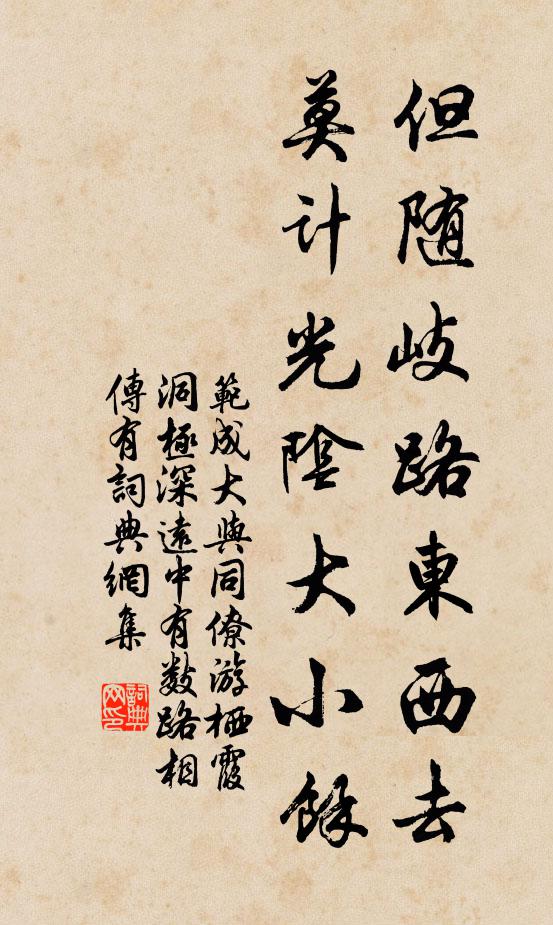 但随岐路東西去
莫计光陰大小餘
範成大與同僚游栖霞
洞極深遠中有数路相
傳有詞典網集
詞典
网印